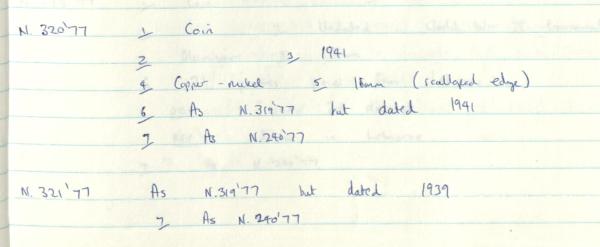 N. 320'77 1 Coin
2 3 1941
4 Copper-nickel 5 16mm (scalloped edge)
6 As N.319'77 but dated 1941
7 As N.240'77
N. 321'77 As N.319'77 but dated 1939
7 As N. 240'77